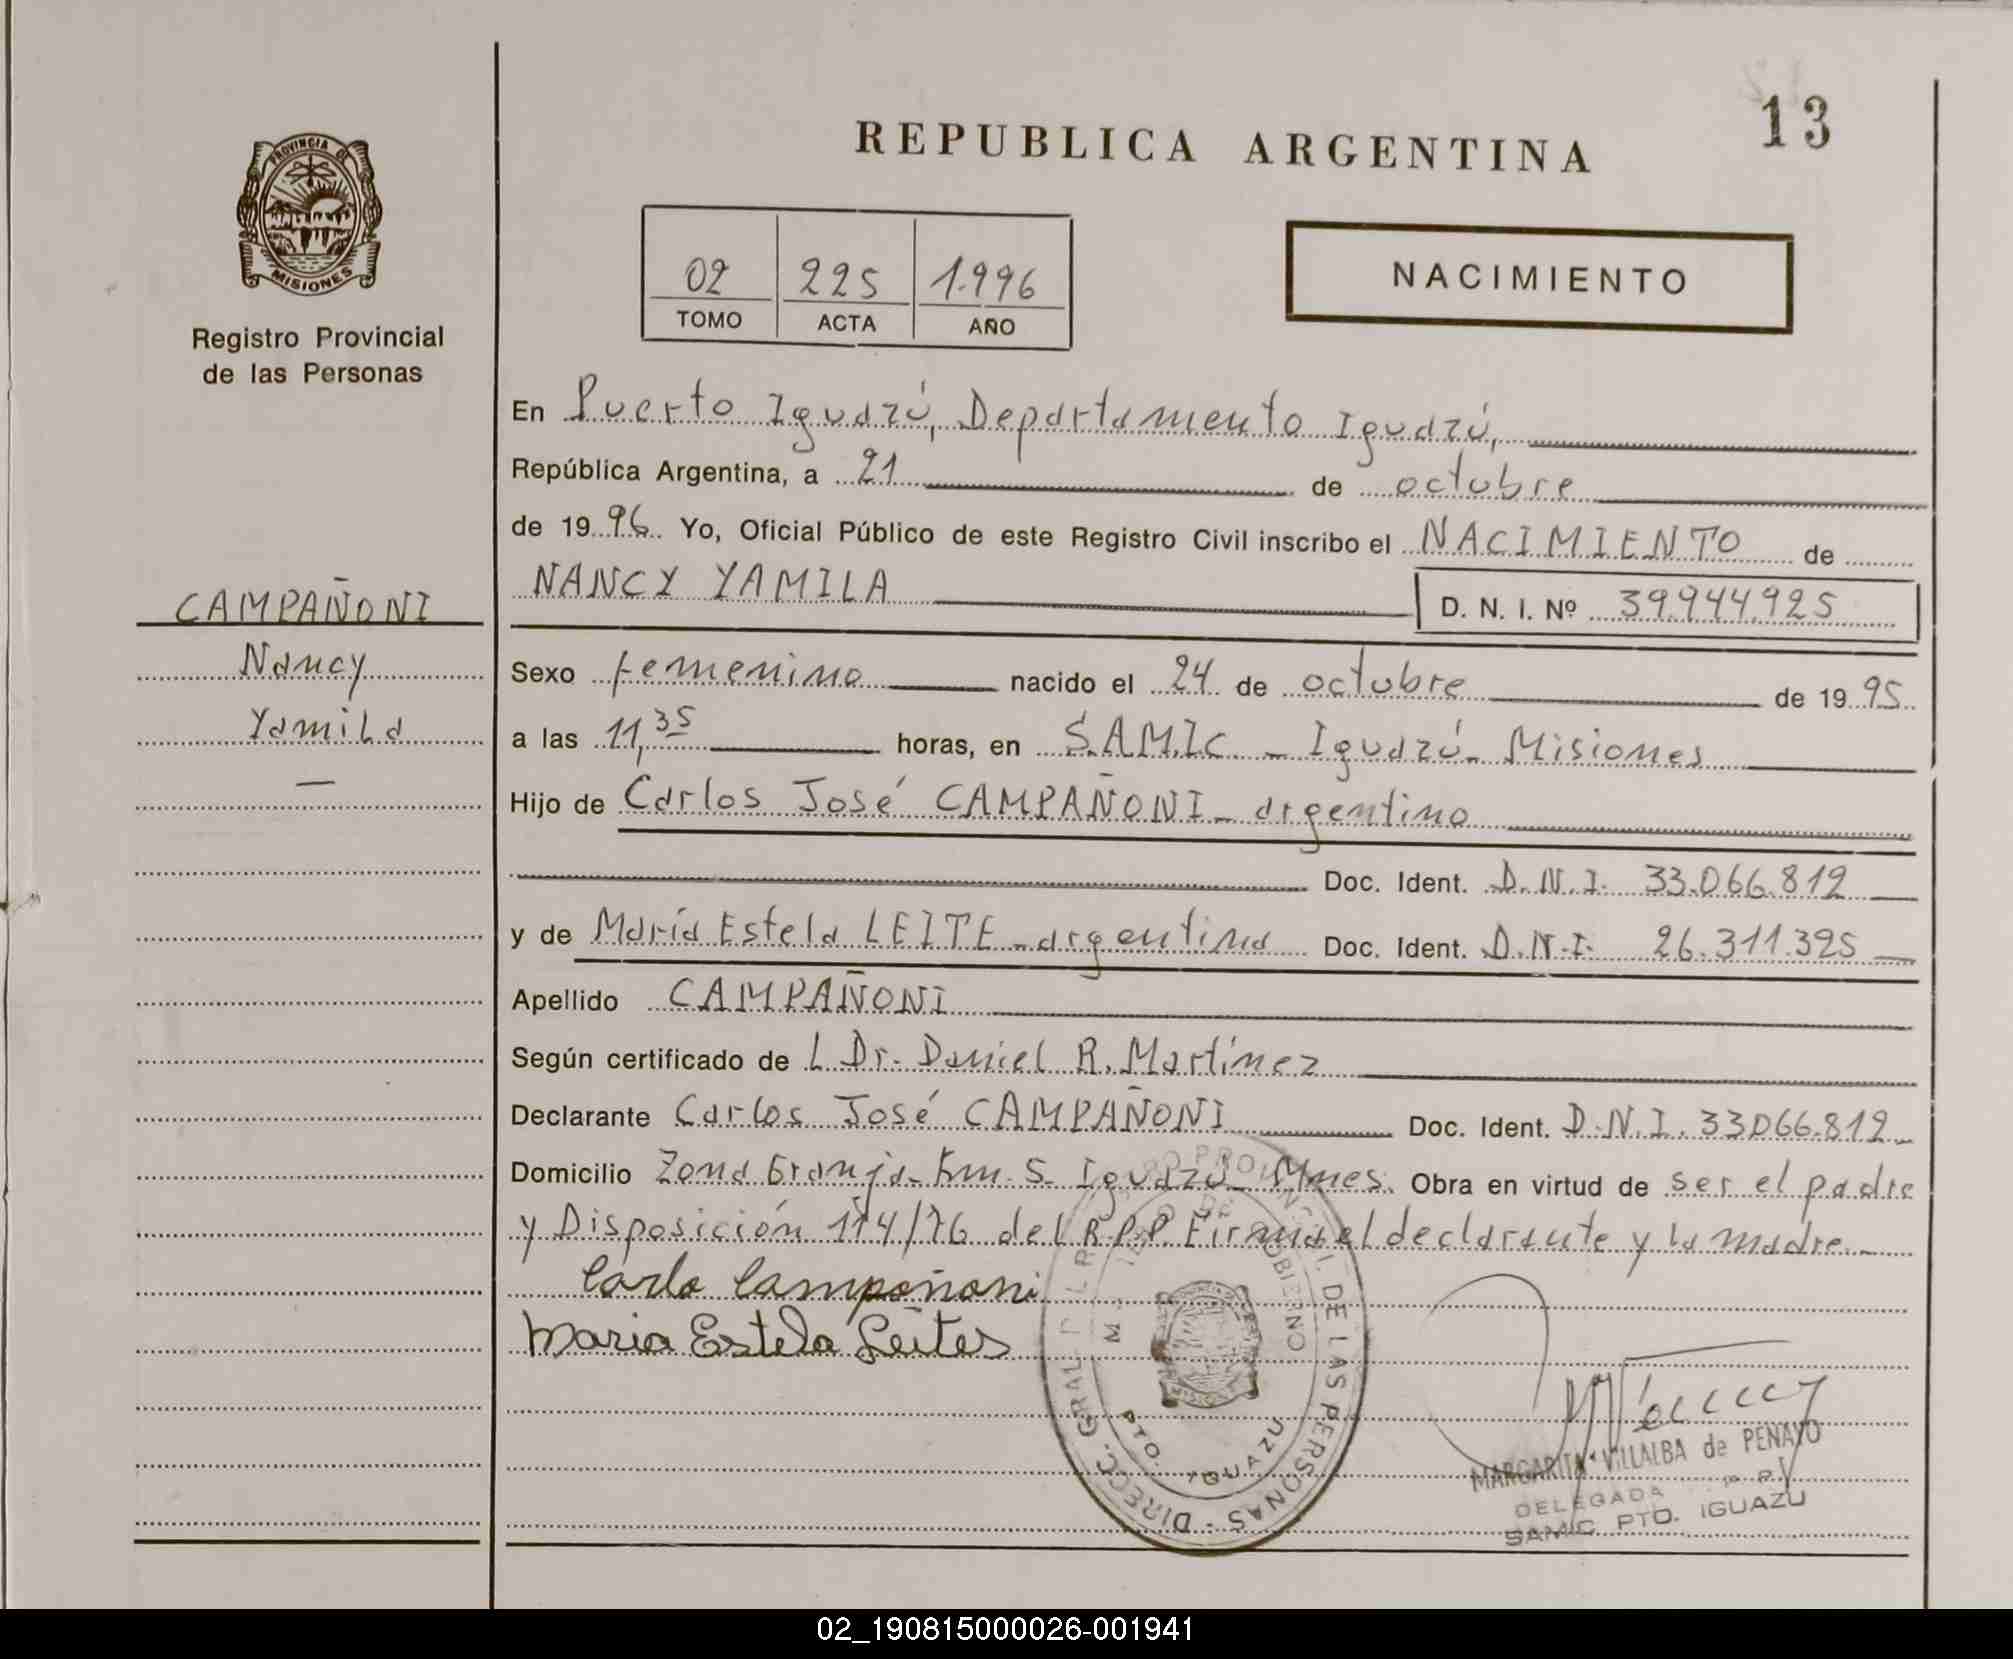 13
REPUBLICA ARGENTINA
PROVINCIA DE
MISIONES
Registro Provincial
de las Personas
02 225 1.996
TOMO ACTA AÑO
NACIMIENTO
En Puerto Iguazú, Departamento Iguazú,
República Argentina, a 21 de octubre
de 1996. Yo, Oficial Público de este Registro Civil inscribo el NACIMIENTO de
NANCY YAMILA D. N. I. Nº 39.944.925
CAMPAÑONI
Nancy
Yamila
—
Sexo femenino nacido el 24 de octubre de 1995.
a las 11,35 horas, en S.A.M.I.C. - Iguazú - Misiones
Hijo de Carlos José CAMPAÑONI - argentino
Doc. Ident. D.N.I. 33.066.812
y de María Estela LEITE - argentina Doc. Ident. D.N.I. 26.311.325
Apellido CAMPAÑONI
Según certificado de L Dr. Daniel R. Martínez
Declarante Carlos José CAMPAÑONI Doc. Ident. D.N.I. 33.066.812
Domicilio Zona Granja - Km. 5 - Iguazú - Mnes. Obra en virtud de ser el padre
y Disposición 114/76 del R.P.P. Firma el declarante y la madre.
Carlo Campañoni
Maria Estela Leites
DE LAS PERSONAS - DIRECC. GRAL. DEL R
GOBIERNO
PTO. IGUAZU
MARGARITA VILLALBA de PENAYO
DELEGADA
SAMIC PTO. IGUAZU
02_190815000026-001941